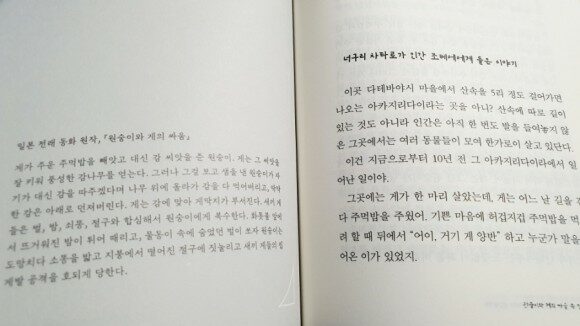 일본 전래 동화 원작, 『원숭이와 게의 싸움』
게가 주운 주먹밥을 빼앗고 대신 감 씨앗을 준 원숭이. 게는 그 씨앗을
잘 키워 풍성한 감나무를 얻는다. 그러나 그걸 보고 샘을 낸 원숭이가 자
기가 대신 감을 따주겠다며 나무 위에 올라가 감을 다 먹어버리고, 딱딱
한 감은 아래로 던져버린다. 게는 감에 맞아 게딱지가 부서진다. 새끼 게
들은 벌, 밤, 쇠똥, 절구와 합심해서 원숭이에게 복수한다. 화롯불 앞에
서 뜨거워진 밤이 튀어 때리고, 물동이 속에 숨었던 벌이 쏘자 원숭이는
도망치다 소똥을 밟고 지붕에서 떨어진 절구에 짓눌리고 새끼 게들의 집
게발 공격을 호되게 당한다.
너구리 사타로가 인간 조베에에게 들은 이야기
이곳 다테바야시 마을에서 산속을 5리 정도 걸어가면
나오는 아카지리다이라는 곳을 아니? 산속에 따로 길이
있는 것도 아니라 인간은 아직 한 번도 발을 들여놓지 않
은 그곳에서는 여러 동물들이 모여 한가로이 살고 있단다.
이건 지금으로부터 10년 전 그 아카지리다이라에서 일
어난 일이야.
그곳에는 게가 한 마리 살았는데, 게는 어느 날 길을
다 주먹밥을 주웠어. 기쁜 마음에 허겁지겁 주먹밥을 먹
려 할 때 뒤에서 "어이, 거기 게 양반" 하고 누군가 말을
어온 이가 있었지.
원숭이와 게의